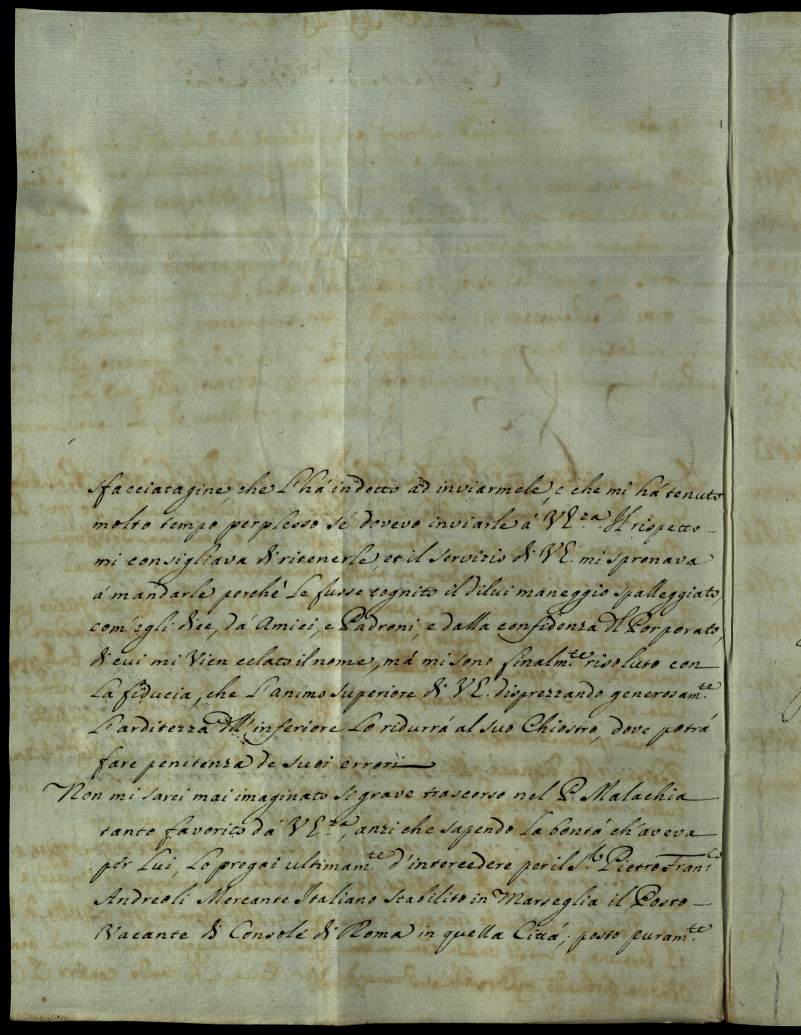 sfacciatagine, che l'hà indotto ad inviarmele, e che mi hà tenuto
molto tempo perplesso sé dovevo inviarle à VE.za. Il rispetto
mi consigliava di ritenerle, et il servizio di VE. mi spronava
à mandarle perché le fusse cognito il dilui maneggio spalleggiato,
com'egli dice, dà Amici, e Padroni, e dalla confidenza d'l Porporato,
di cui mi vien celato il nome, mà mi sono finalm.te risoluto con
la fiducia, che l'animo superiore di VE. disprezzando generosam.te
l'arditezza dll'inferiore lo ridurrà al suo Chiostro, dove potrà
fare penitenza de suoi errori
Non mi sarei mai imaginato si grave trascorso nel P. Malachia
tanto favorito dà VE.za, anzi che sapendo la bontà ch'aveva
per lui, lo pregai ultimam.te d'intercedere per il S.r Pietro Fran.co
Andreoli Mercante Italiano stabilito in Marseglia il Posto
Vacante di Console di Roma in quella Città, posto puram.te